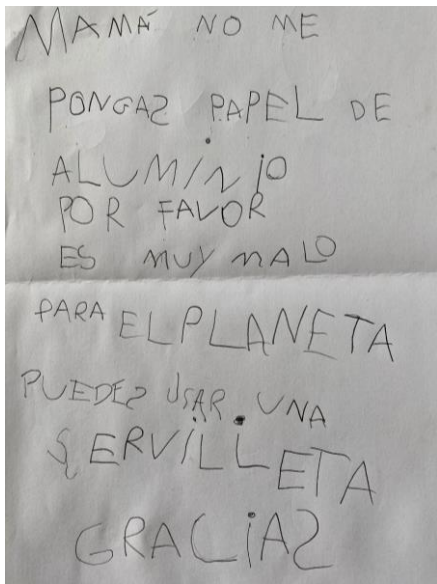 MAMÁ NO ME
PONGAS PAPEL DE
ALUMINIO
POR FAVOR
ES MUY MALO
PARA EL PLANETA
PUEDES USAR UNA
SERVILLETA
GRACIAS